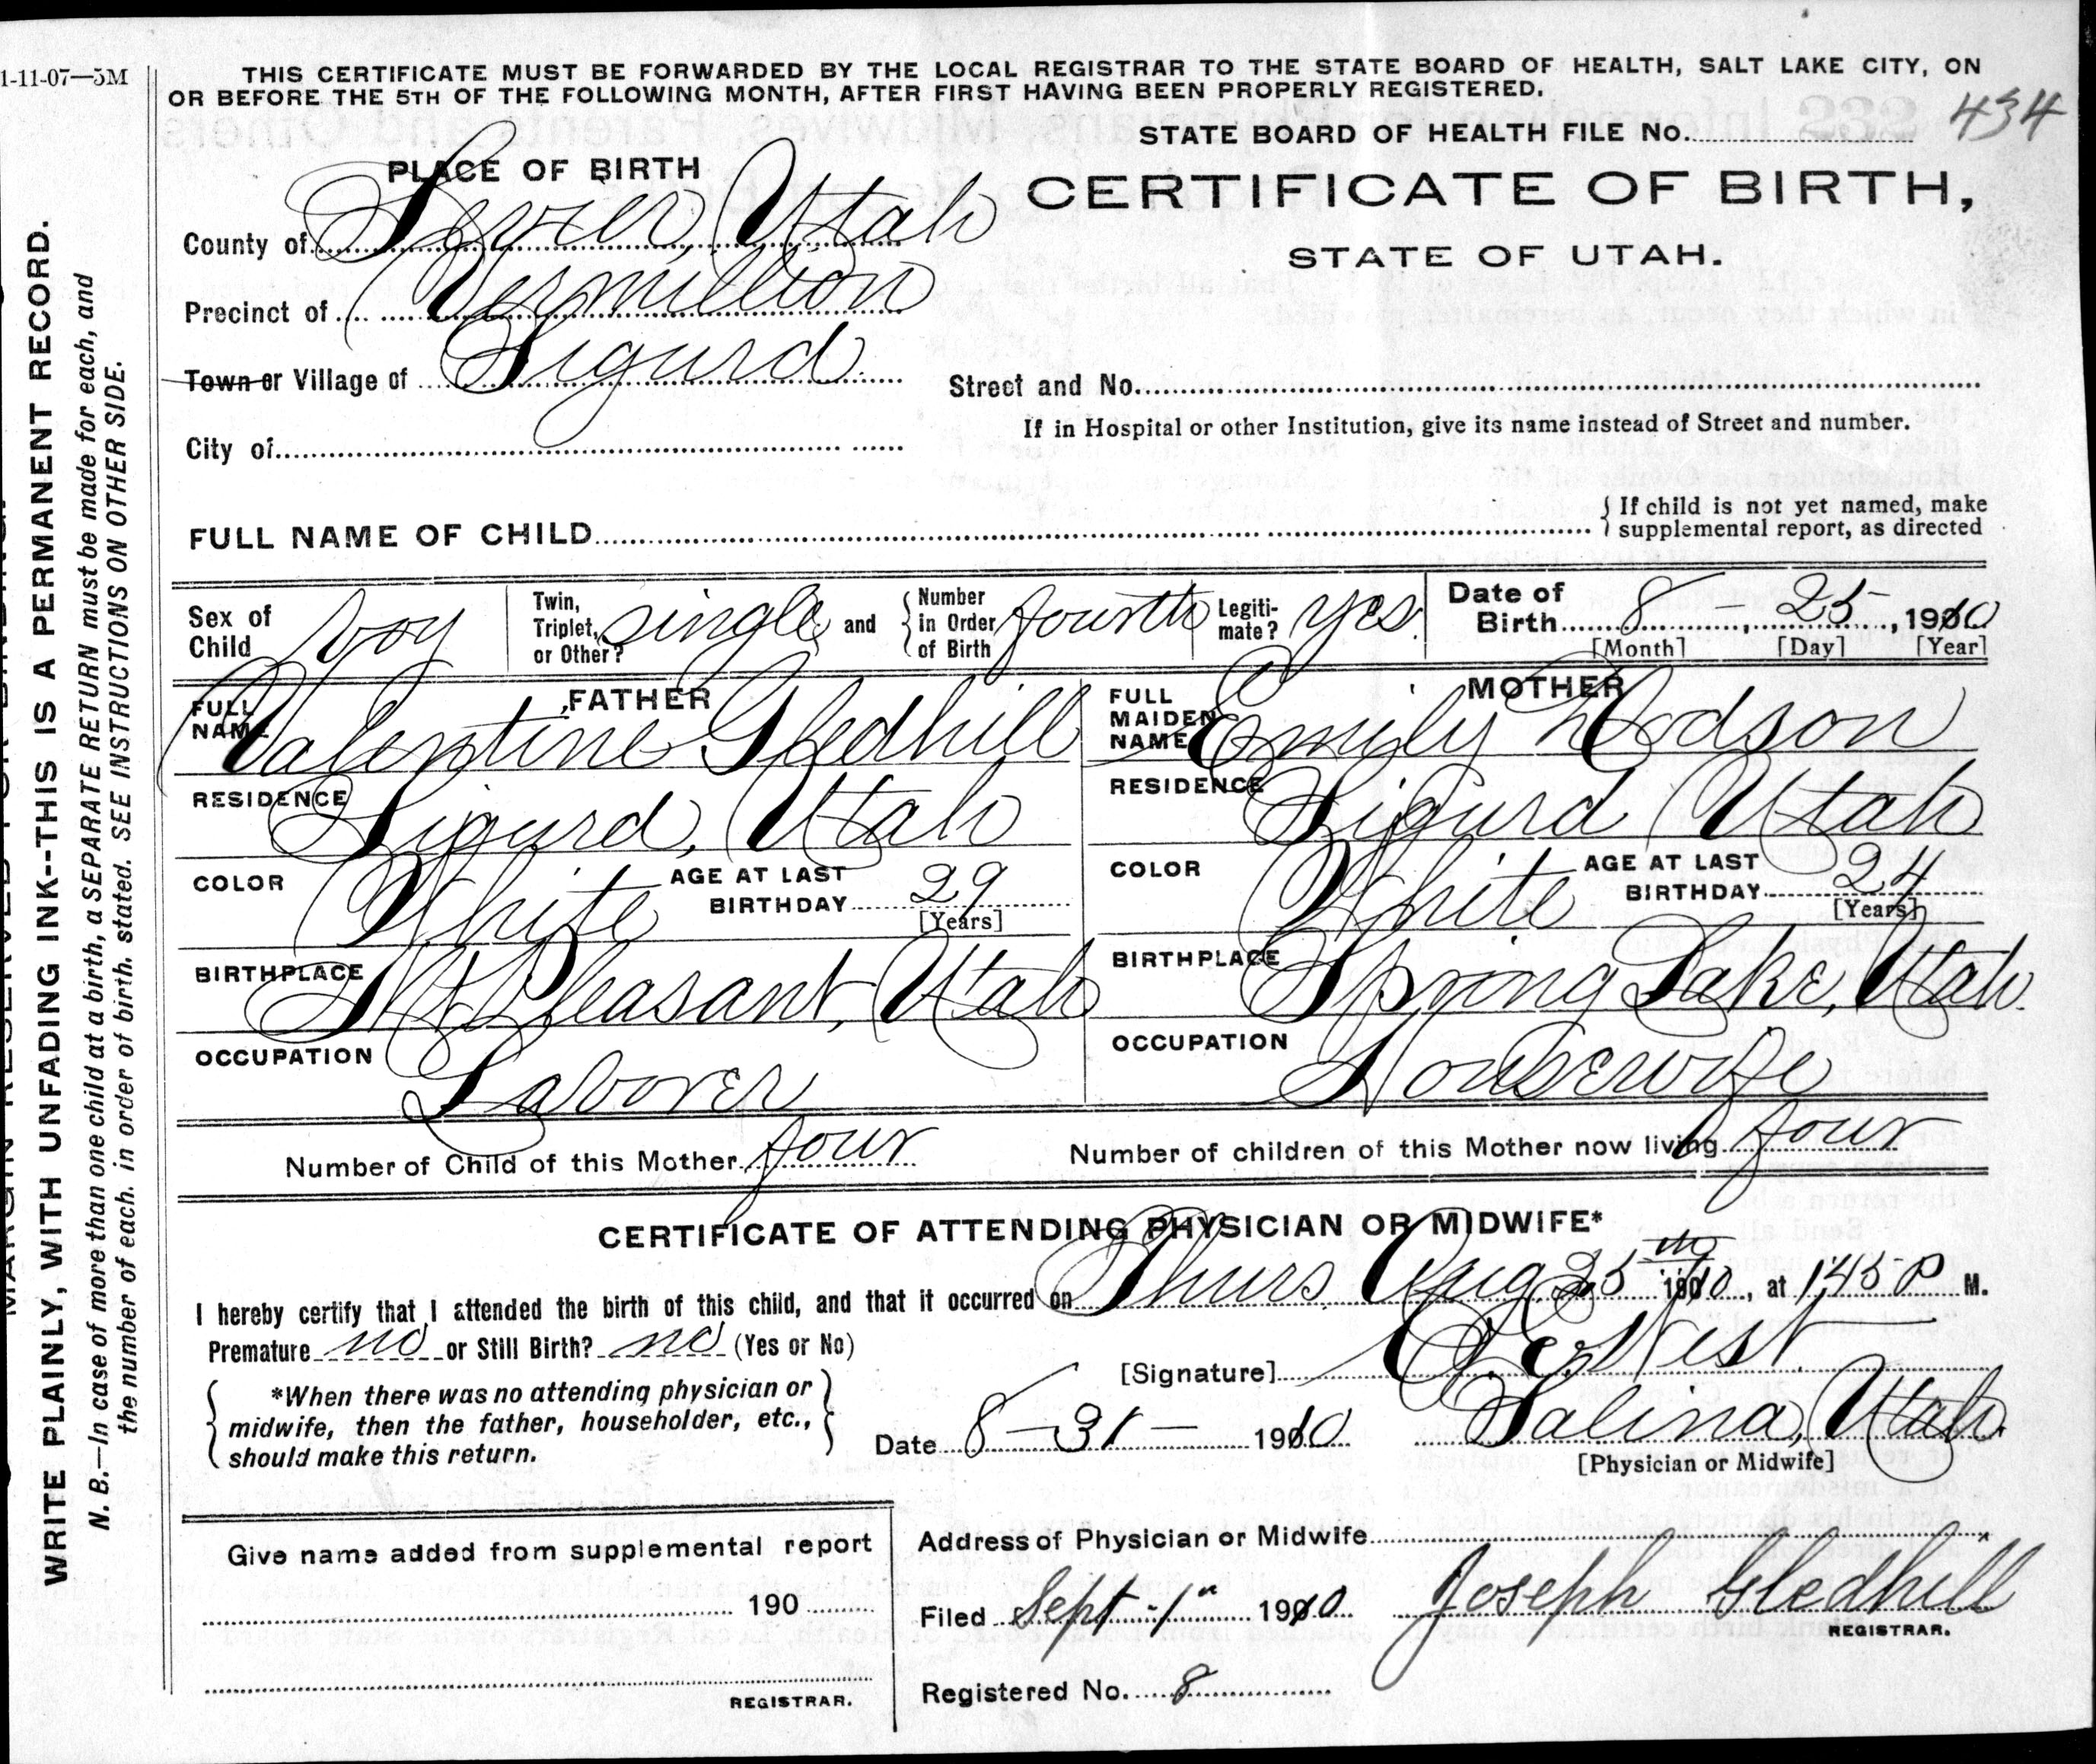 1-11-07—5M
THIS CERTIFICATE MUST BE FORWARDED BY THE LOCAL REGISTRAR TO THE STATE BOARD OF HEALTH, SALT LAKE CITY, ON
OR BEFORE THE 5TH OF THE FOLLOWING MONTH, AFTER FIRST HAVING BEEN PROPERLY REGISTERED.
STATE BOARD OF HEALTH FILE No. 434
PLACE OF BIRTH
CERTIFICATE OF BIRTH,
STATE OF UTAH.
County of Sevier, Utah
Precinct of Vermillion
Town or Village of Sigurd
Street and No.
If in Hospital or other Institution, give its name instead of Street and number.
City of
FULL NAME OF CHILD
{If child is not yet named, make
supplemental report, as directed
Sex of Child boy
Twin, Triplet, or Other? single and
{Number in Order of Birth fourth
Legiti-mate? yes.
Date of Birth 8 – , 25 , 1910
[Month] [Day] [Year]
FATHER
FULL NAME Valentine Gledhill
RESIDENCE Sigurd, Utah
COLOR White
AGE AT LAST BIRTHDAY 29
[Years]
BIRTHPLACE Mt Pleasant, Utah
OCCUPATION Laborer
MOTHER
FULL MAIDEN NAME Emily Dodson
RESIDENCE Sigurd Utah
COLOR White
AGE AT LAST BIRTHDAY 24
[Years]
BIRTHPLACE Spring Lake, Utah.
OCCUPATION Housewife
Number of Child of this Mother four
Number of children of this Mother now living four
CERTIFICATE OF ATTENDING PHYSICIAN OR MIDWIFE*
I hereby certify that I attended the birth of this child, and that it occurred on Thurs Aug 25th 1910, at 145 P M.
Premature no or Still Birth? no (Yes or No)
[Signature] West
{*When there was no attending physician or
midwife, then the father, householder, etc.,
should make this return.}
Date 8–31– 1910
Salina, Utah.
[Physician or Midwife]
Give name added from supplemental report
190
REGISTRAR.
Address of Physician or Midwife
Filed Sept. 1" 1910
Joseph Gledhill
REGISTRAR.
Registered No. 8
WRITE PLAINLY, WITH UNFADING INK--THIS IS A PERMANENT RECORD.
N. B.—In case of more than one child at a birth, a SEPARATE RETURN must be made for each, and
the number of each. in order of birth. stated. SEE INSTRUCTIONS ON OTHER SIDE.